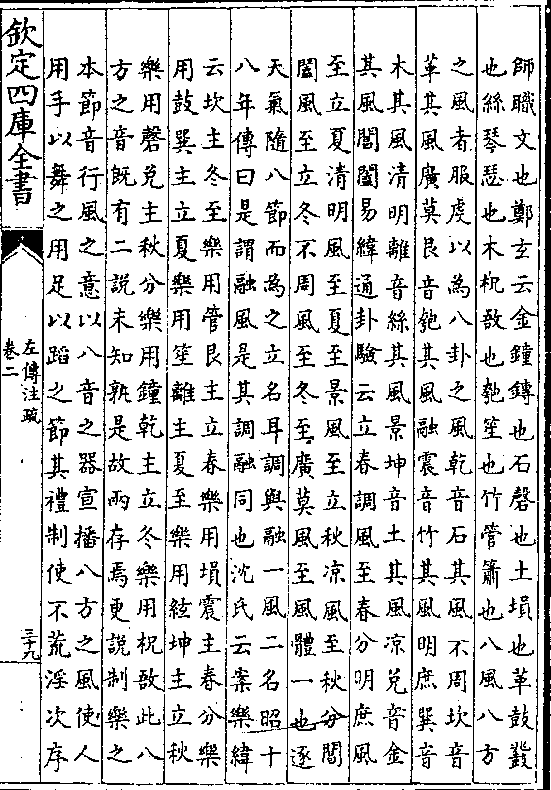 師職文也鄭玄云金鐘鎛也石磬也土塤也革鼓鼗
也絲琴瑟也木柷敔也匏笙也竹管簫也八風八方
之風者服虔以為八卦之風乾音石其風不周坎音
革其風廣莫艮音匏其風融震音竹其風明庶巽音
木其風清明離音絲其風景坤音土其風凉兌音金
其風閶闔易緯通卦驗云立春調風至春分明庶風
至立夏清明風至夏至景風至立秋凉風至秋分閶
闔風至立冬不周風至冬至廣莫風至風體一也逐
天氣隨八節而為之立名耳調與融一風二名昭十
八年傳曰是謂融風是其調融同也沈氏云案樂緯
云坎主冬至樂用管艮主立春樂用塤震主春分樂
用鼓巽主立夏樂用笙離主夏至樂用絃坤主立秋
樂用磬兌主秋分樂用鐘乾主立冬樂用柷敔此八
方之音既有二說未知孰是故兩存焉更說制樂之
本節音行風之意以八音之器宣播八方之風使人
用手以舞之用足以蹈之節其禮制使不荒淫次序
欽定四庫全書
左傳注疏
卷二
三九